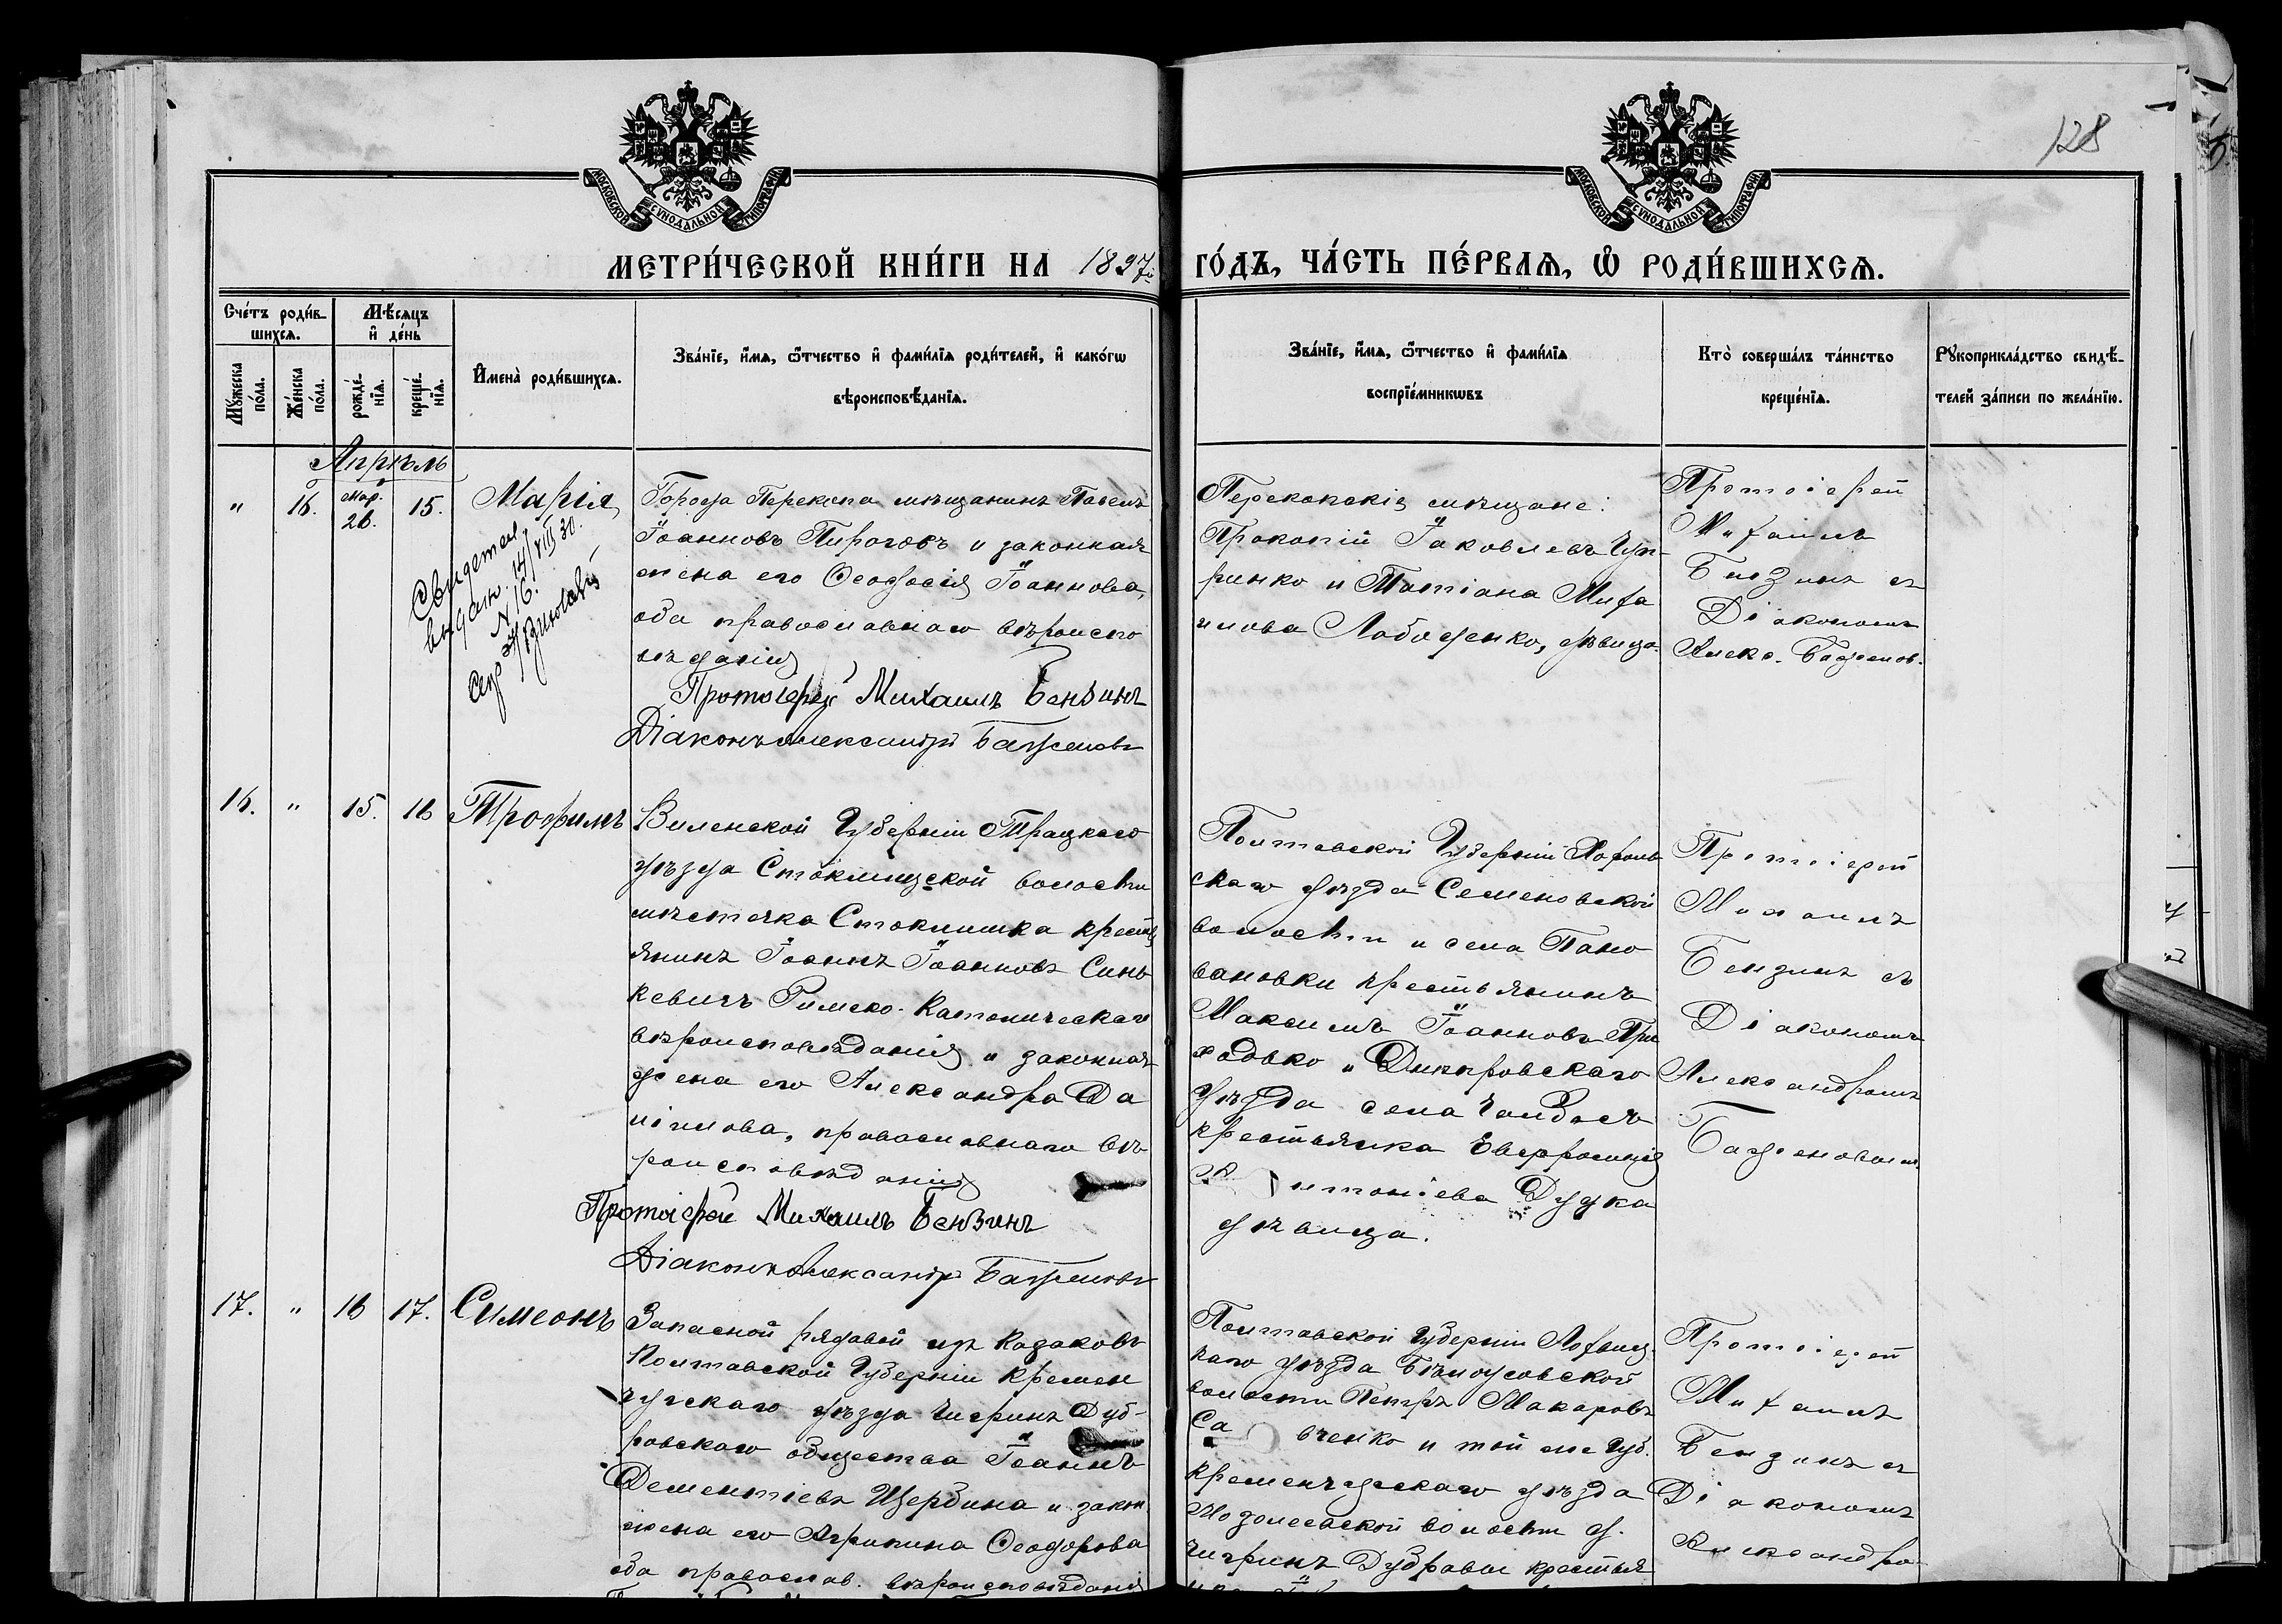 128
МОСКОВСКОЙ СѴНОДАЛЬНОЙ ТИПОГРАФІИ
МОСКОВСКОЙ СѴНОДАЛЬНОЙ ТИПОГРАФІИ
МЕТРИ́ЧЕСКОЙ КНИ́ГИ НА 1897 ГО́ДЪ, ЧА́СТЬ ПЕ́РВАЯ, Ѡ҆ РОДИ́ВШИХСЯ.
Сче́тъ роди́в-
шихся.
Мꙋ́жеска
по́ла.
Же́нска
по́ла.
Мѣ́сяцъ
и҆ де́нь
рожде́-
нїя.
креще́-
нїя.
И҆мена̀ роди́вшихся.
Зва́нїе, и҆́мя, ѻ҆́тчество и҆ фами́лїя роди́телей, и҆ како́гѡ
вѣроисповѣ́данїя.
Зва́нїе, и҆́мя, ѻ҆́тчество и҆ фами́лїя
воспрїе́мникѡвъ
Кто̀ соверша́лъ та́инство
креще́нїя.
Рꙋкоприкла́дство свидѣ́-
телей за́писи по жела́нїю.
Апрѣль
" 16. Мар. 26. 15. Марія
Города Перекопа мѣщанинъ Павелъ
Іоанновъ Пироговъ и законная
жена его Ѳеодосія Іоаннова,
оба православнаго вѣроиспо
вѣданія
Протоіерей Михаилъ Бензинъ
Діаконъ Александръ Баженовъ
Свидетел.
выдано 14/VIII 30.
N 16.
Перекопскіе мѣщане:
Прокопій Іаковлевъ Чуп-
ринко и Татіана Миха
илова Лободенко, дѣвица.
Протоіерей
Михаилъ
Бензинъ съ
Діакономъ
Алекс. Баженов.
16. " 15. 16 Трофимъ
Виленской Губерніи Трацкаго
уѣзда Стоклишской волости
мѣстечка Стоклишка кресть
янинъ Іоаннъ Іоанновъ Синь
кевичъ Римско-Католическаго
вѣроисповѣданія и законная
жена его Александра Да
ніилова, православнаго вѣ
роисповѣданія
Протоіерей Михаилъ Бензинъ
Діаконъ Александръ Баженовъ
Полтавской Губерніи Хороль
скаго уѣзда Семеновской
волости и села Пано
вановки крестьянинъ
Максимъ Іоанновъ При
ходько и Днѣпровскаго
уѣзда села Чолбасъ
крестьянка Евфросинія
Антоніева Дудка
дѣвица.
Протоіерей
Михаилъ
Бензинъ съ
Діакономъ
Александромъ
Баженовым.
17. " 16 17. Симеонъ
Запасной рядовой изъ казаковъ
Полтавской Губерніи Кремен
чугскаго уѣзда Чигринъ Дуб-
ровскаго общества Іоаннъ
Дементіевъ Щербина и закон
жена его Агрипина Ѳеодорова
оба православ. вѣроисповѣданія
Полтавской Губерніи Лохвиц-
каго уѣзда Бѣлоусовской
волости Петръ Макаровъ
Са вченко и той же Губ.
Кременчугскаго уѣзда
волости д.
Чигринъ Дубравы крестья
Протоіерей
Михаилъ
Бензинъ съ
Діакономъ
Александро